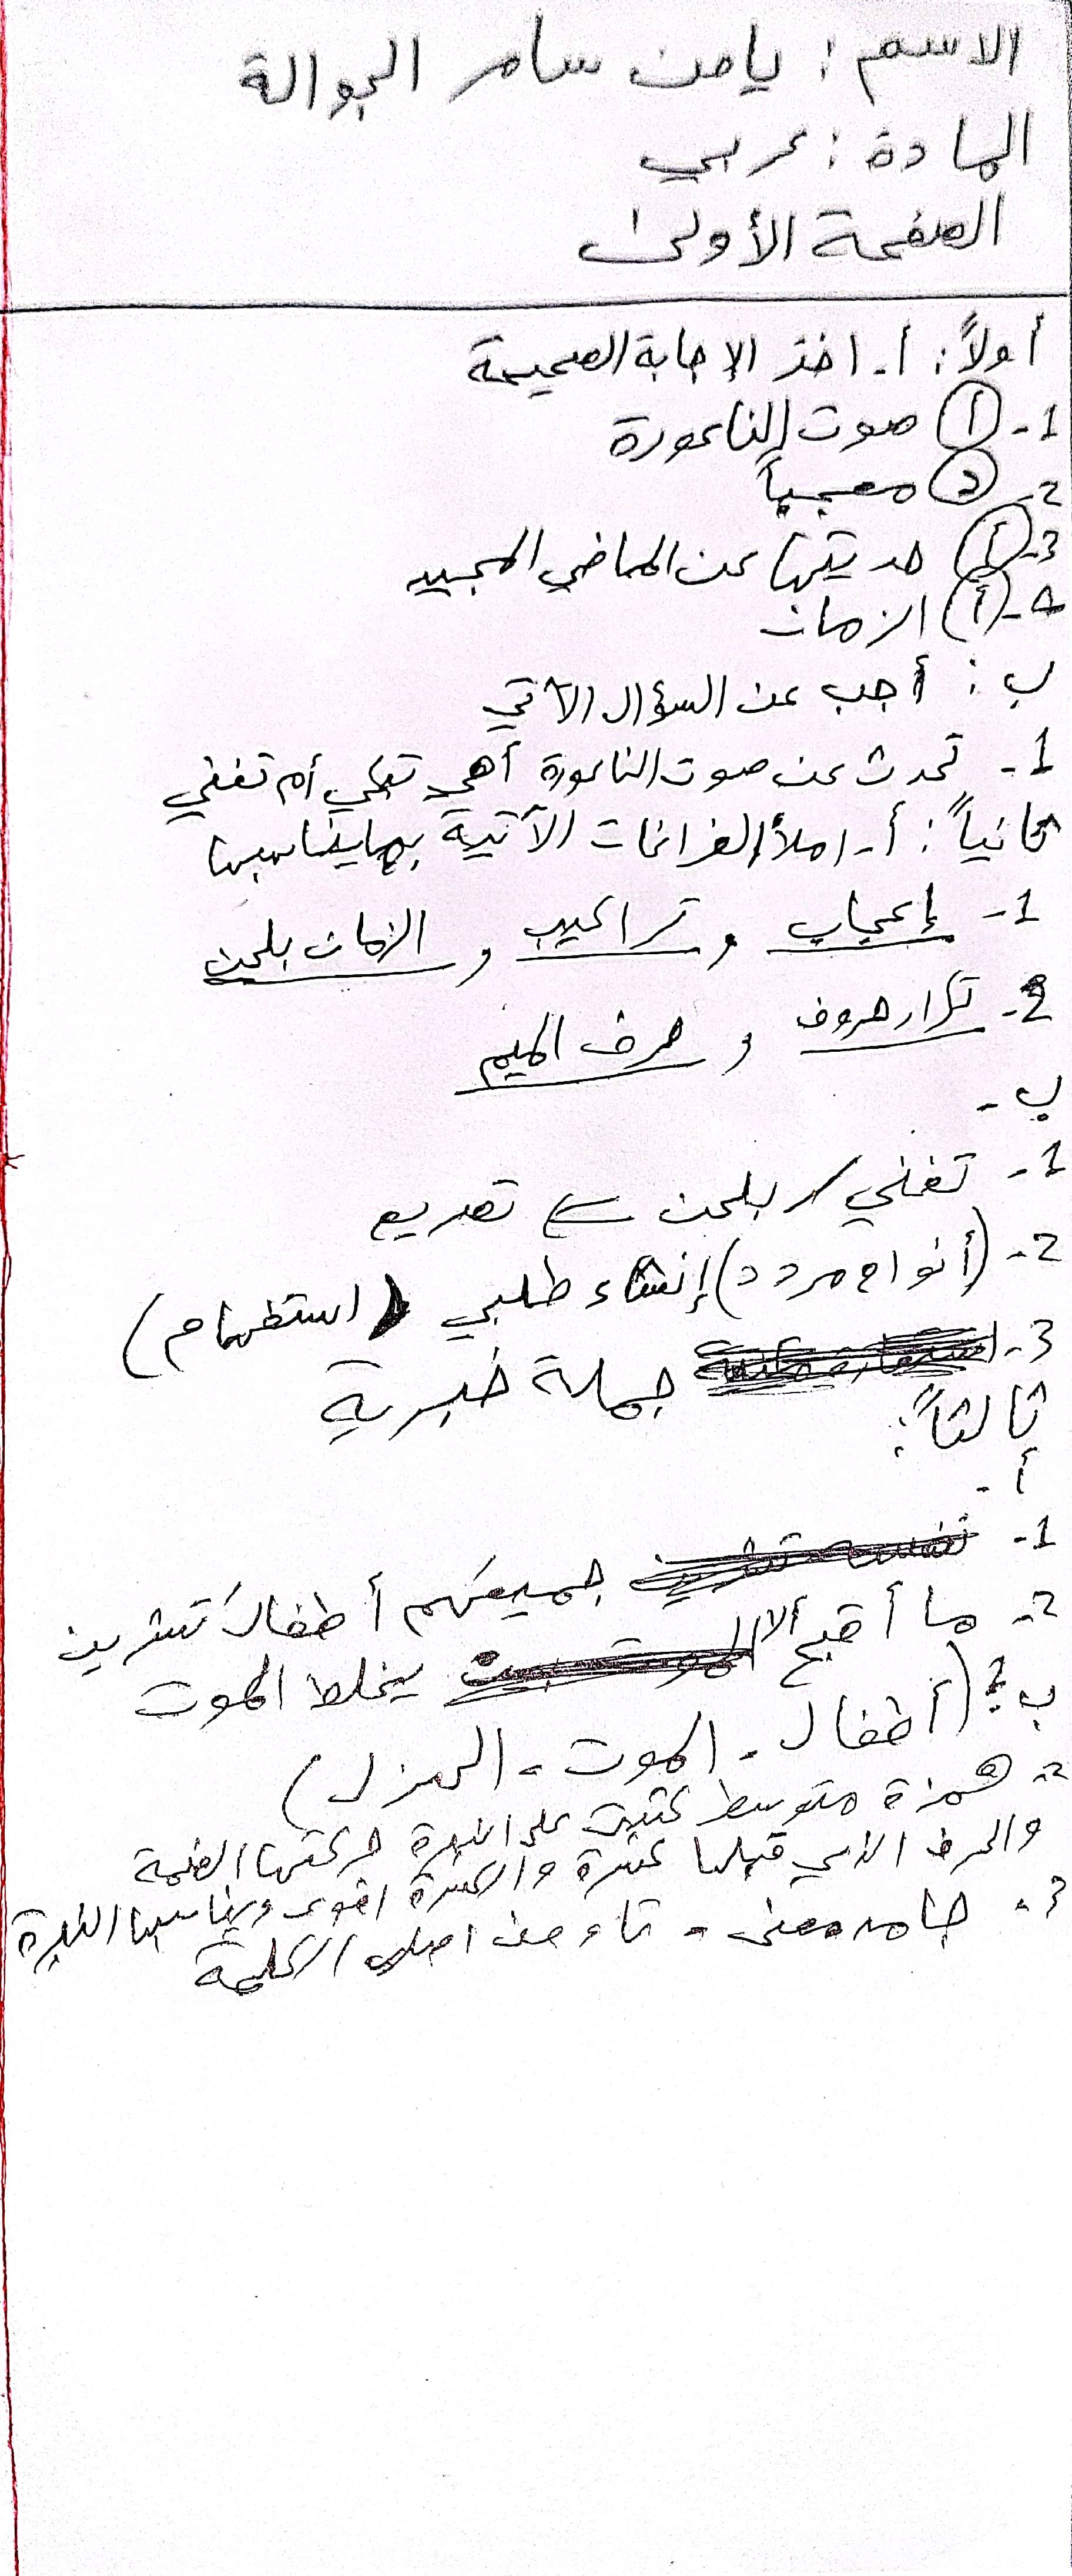 الاسم : يامن سامر الجوالة
المادة : عربي
الصفحة الأولى
أولاً : أ. اختر الإجابة الصحيحة
1- أ صوت الناعورة
2- د معجباً
3- أ حديثها عن الماضي المجيد
4- أ الزمان
ب : أجب عن السؤال الآتي
1- تحدث عن صوت الناعورة أهي تبكي أم تغني
ثانياً : أ- املأ الفراغات الآتية بما يناسبها
1- إعجاب و تراكيب و الزمان بلحن
2- تكرار حروف و حرف الميم
ب -
1- تغني / بلحن تصريع
2- (أنواح مردد) إنشاء طلبي (استفهام)
3- جملة خبرية
ثالثاً :
أ -
1- جميعَهم أطفالَ تشرين
2- ما أقبح ألا يخلط الموت
ب : 1 (أطفال - الموت - الهزل)
2- همزة متوسط كتبت على النبرة حركتها الضمة
والحرف الذي قبلها كسرة والكسرة اقوى ويناسبها النبرة
3- جامد معنى - تاء من اصل الكلمة